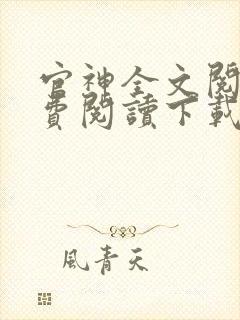 官神全文閱
費閱讀下載
風青天